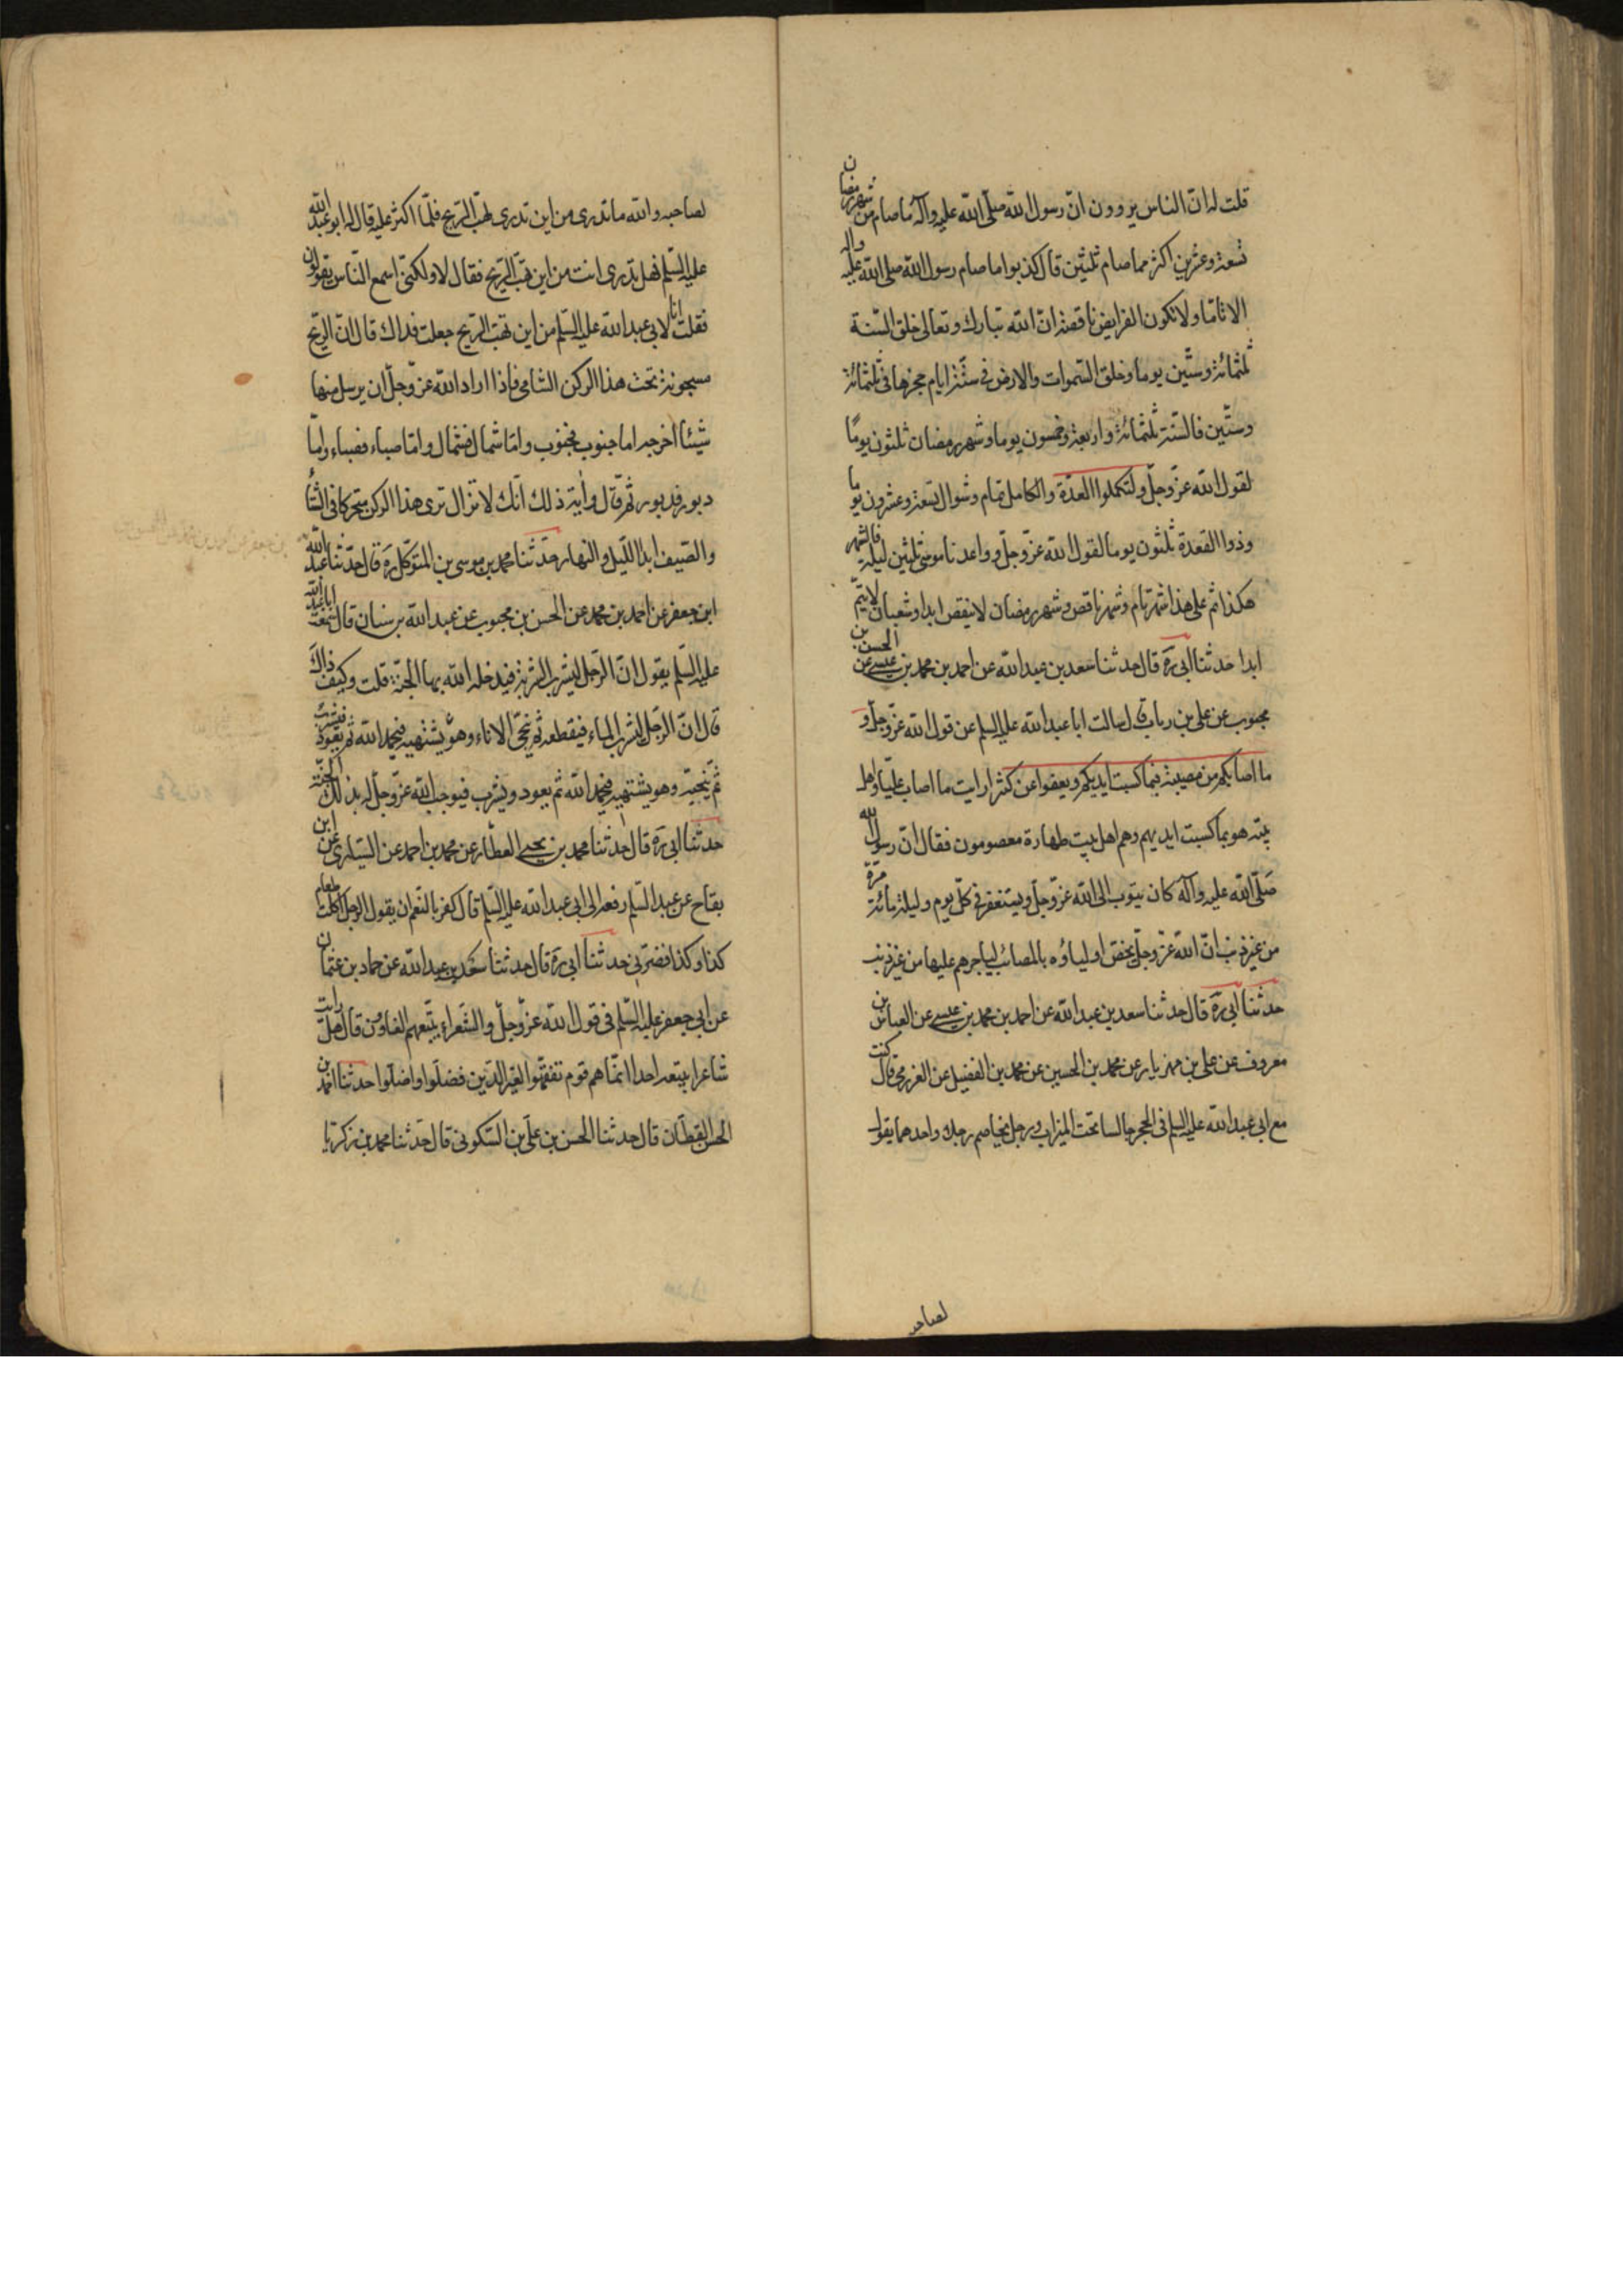 قلت له ان الناس يروون ان رسول الله صلى الله عليه وآله ما صام من شهر رمضان
تسعة وعشرين اكثر مما صام ثلثين قال كذبوا ما صام رسول الله صلى الله عليه وآله
الا تاما ولا تكون الفرايض ناقصة ان الله تبارك وتعالى خلق السنة
ثلثمائة وستين يوما وخلق السموات والارض فى ستة ايام حجزها فى ثلثمائة
وستين فالسنة ثلثمائة واربعة وخمسون يوما وشهر رمضان ثلثون يوما
لقول الله عز وجل ولتكملوا العدة والكامل تمام وشوال تسعة وعشرون يوما
وذوا القعدة ثلثون يوما لقول الله عز وجل وواعدنا موسى ثلثين ليلة فالشهر
هكذا ثم على هذا شهر تام وشهر ناقص وشهر رمضان لا ينقص ابدا وشعبان لا يتم
ابدا حدثنا ابى ره قال حدثنا سعد بن عبد الله عن احمد بن محمد بن عيسى عن الحسن بن
محبوب عن على بن رياب قال سالت ابا عبد الله عليه السلم عن قول الله عز وجل و
ما اصابكم من مصيبة فبما كسبت ايديكم ويعفوا عن كثير ارايت ما اصاب عليا واهل
بيته هو بما كسبت ايديهم وهم اهل بيت طهارة معصومون فقال ان رسول الله
صلى الله عليه وآله كان يتوب الى الله عز وجل ويستغفر فى كل يوم وليلة مائة مرة
من غير ذنب ان الله عز وجل يخص اولياؤه بالمصائب لياجرهم عليها من غير ذنب
حدثنا ابى ره قال حدثنا سعد بن عبد الله عن احمد بن محمد بن عيسى عن العباس بن
معروف عن على بن مهزيار عن محمد بن الحسين عن محمد بن الفضيل عن العزرمى قال كنت
مع ابى عبد الله عليه السلم فى الحجر جالسا تحت الميزاب ورجل يخاصم رجلا واحدهما يقول
لصاحبه
لصاحبه والله ما تدرى من اين تدرى تهب الريح فلما اكثر عليه قال له ابو عبد الله
عليه السلم فهل تدرى انت من اين تهب الريح فقال لا ولكنى اسمع الناس يقولون
فقلت انا لابى عبد الله عليه السلم من اين تهب الريح جعلت فداك قال ان الريح
مسجونة تحت هذا الركن الشامى فاذا اراد الله عز وجل ان يرسل منها
شيئا اخرجه اما جنوب فجنوب واما شمال فشمال واما صباء فصباء واما
دبور فدبور ثم قال وآية ذلك انك لا تزال ترى هذا الركن متحركا فى الشتاء
والصيف ابدا الليل والنهار حدثنا محمد بن موسى بن المتوكل ره قال حدثنا عبد الله
ابن جعفر عن احمد بن محمد عن الحسن بن محبوب عن عبد الله بن سنان قال سمعت ابا عبد الله
عليه السلم يقول ان الرجل ليشرب الشربة فيدخله الله بها الجنة قلت وكيف ذاك
قال ان الرجل ليشرب الماء فيقطعه ثم ينحى الاناء وهو يشتهيه فيحمد الله ثم يعود فيشرب
ثم ينحيه وهو يشتهيه فيحمد الله ثم يعود ويشرب فيوجب الله عز وجل له بذلك الجنة
حدثنا ابى ره قال حدثنا محمد بن يحيى العطار عن محمد بن احمد عن السيارى عن ابن
بقاح عن عبد السلم رفعه الى ابى عبد الله عليه السلم قال كفر بالنعم ان يقول الرجل اكلت طعام
كذا وكذا فضرنى حدثنا ابى ره قال حدثنا سعد بن عبد الله عن حماد بن عثمان
عن ابى جعفر عليه السلم فى قول الله عز وجل والشعراء يتبعهم الغاوون قال هل رايت
شاعرا يتبعه احدا انما هم قوم تفقهوا لغير الدين فضلوا واضلوا حدثنا احمد بن
الحسن القطان قال حدثنا الحسن بن على بن السكونى قال حدثنا محمد بن زكريا